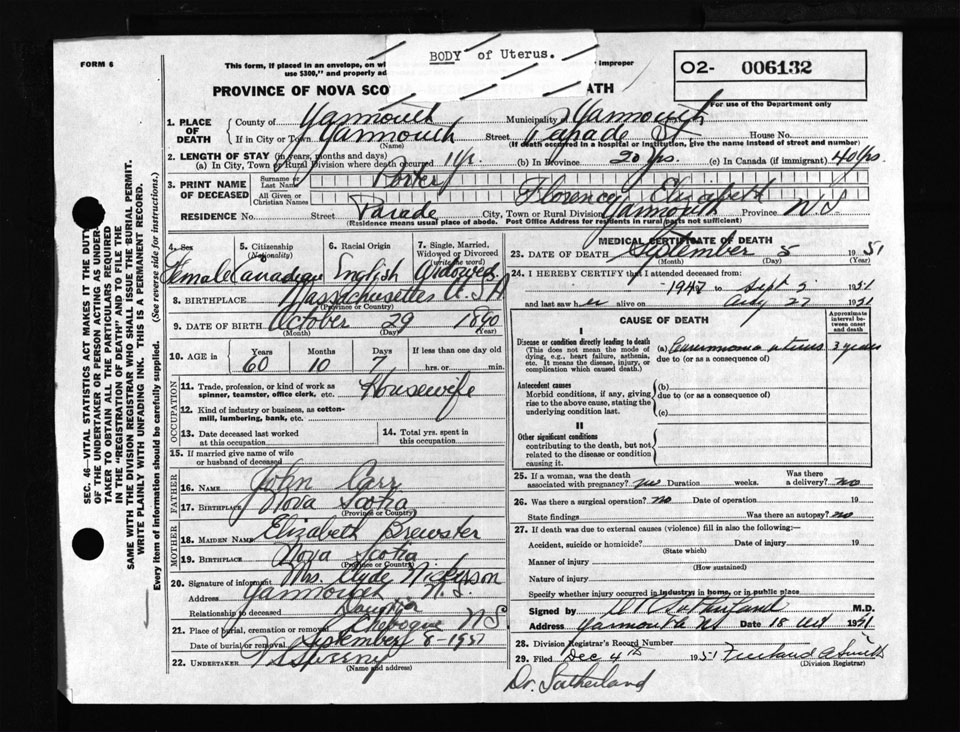 BODY of Uterus.
FORM 6
This form, if placed in an envelope, on wh
improper
use $300," and properly ad
PROVINCE OF NOVA SCO
ATH
O2- 006132
For use of the Department only
1. PLACE OF DEATH
County of Yarmouth Municipality Yarmouth
If in City or Town Yarmouth Street Parade St House No.
(Name) (If death occurred in a hospital or institution, give the name instead of street and number)
2. LENGTH OF STAY (in years, months and days)
(a) In City, Town or Rural Division where death occurred 1 yr. (b) In Province 20 yrs. (c) In Canada (if immigrant) 40 yrs.
3. PRINT NAME OF DECEASED
Surname or Last Name Porter
All Given or Christian Names Florence Elizabeth
RESIDENCE No. Street Parade City, Town or Rural Division Yarmouth Province N S
(Residence means usual place of abode. Post Office Address for residents in rural parts not sufficient)
4. Sex Female
5. Citizenship (Nationality) Canadian
6. Racial Origin English
7. Single, Married, Widowed or Divorced (write the word) Widowed
8. BIRTHPLACE Massachusettes U.S.A
(Province or Country)
9. DATE OF BIRTH October 29 1890
(Month) (Day) (Year)
10. AGE in Years Months Days If less than one day old
60 10 7 hrs. or min.
OCCUPATION
11. Trade, profession or kind of work as spinner, teamster, office clerk, etc. Housewife
12. Kind of industry or business, as cotton-mill, lumbering, bank, etc.
13. Date deceased last worked at this occupation
14. Total yrs. spent in this occupation
15. If married give name of wife or husband of deceased
FATHER
16. NAME John Carr
17. BIRTHPLACE Nova Scotia
(Province or Country)
MOTHER
18. MAIDEN NAME Elizabeth Brewster
19. BIRTHPLACE Nova Scotia
(Province or Country)
20. Signature of informant Mrs. Clyde Nickerson
Address Yarmouth N.S.
Relationship to deceased Daughter
21. Place of burial, cremation or removal Chebogue N S.
Date of burial or removal September 8 - 1951
22. UNDERTAKER Sweeny
(Name and address)
MEDICAL CERTIFICATE OF DEATH
23. DATE OF DEATH September 5 1951
(Month) (Day) (Year)
24. I HEREBY CERTIFY that I attended deceased from:
1947 to Sept 5 1951
and last saw her alive on Aug 27 1951
CAUSE OF DEATH
Approximate interval between onset and death
I
Disease or condition directly leading to death
(This does not mean the mode of dying, e.g., heart failure, asthenia, etc. It means the disease, injury, or complication which caused death.)
(a) Carcinoma uterus 3 years
due to (or as a consequence of)
Antecedent causes
Morbid conditions, if any, giving rise to the above cause, stating the underlying condition last.
(b)
due to (or as a consequence of)
(c)
II
Other significant conditions contributing to the death, but not related to the disease or condition causing it.
25. If a woman, was the death associated with pregnancy? no Duration weeks. Was there a delivery? no
26. Was there a surgical operation? no Date of operation 19
State findings Was there an autopsy? no
27. If death was due to external causes (violence) fill in also the following:—
Accident, suicide or homicide? Date of injury 19
(State which)
Manner of injury
(How sustained)
Nature of injury
Specify whether injury occurred in industry, in home, or in public place
Signed by Sutherland M.D.
Address Yarmouth NS Date 18 Oct 1951
28. Division Registrar's Record Number
29. Filed Dec 4th 1951 Smith
(Division Registrar)
Dr. Sutherland
SEC. 46—VITAL STATISTICS ACT MAKES IT THE DUTY
OF THE UNDERTAKER OR PERSON ACTING AS UNDER-
TAKER TO OBTAIN ALL THE PARTICULARS REQUIRED
IN THE "REGISTRATION OF DEATH" AND TO FILE THE
SAME WITH THE DIVISION REGISTRAR WHO SHALL ISSUE THE BURIAL PERMIT.
WRITE PLAINLY WITH UNFADING INK. THIS IS A PERMANENT RECORD.
Every item of information should be carefully supplied. (See reverse side for instructions.)